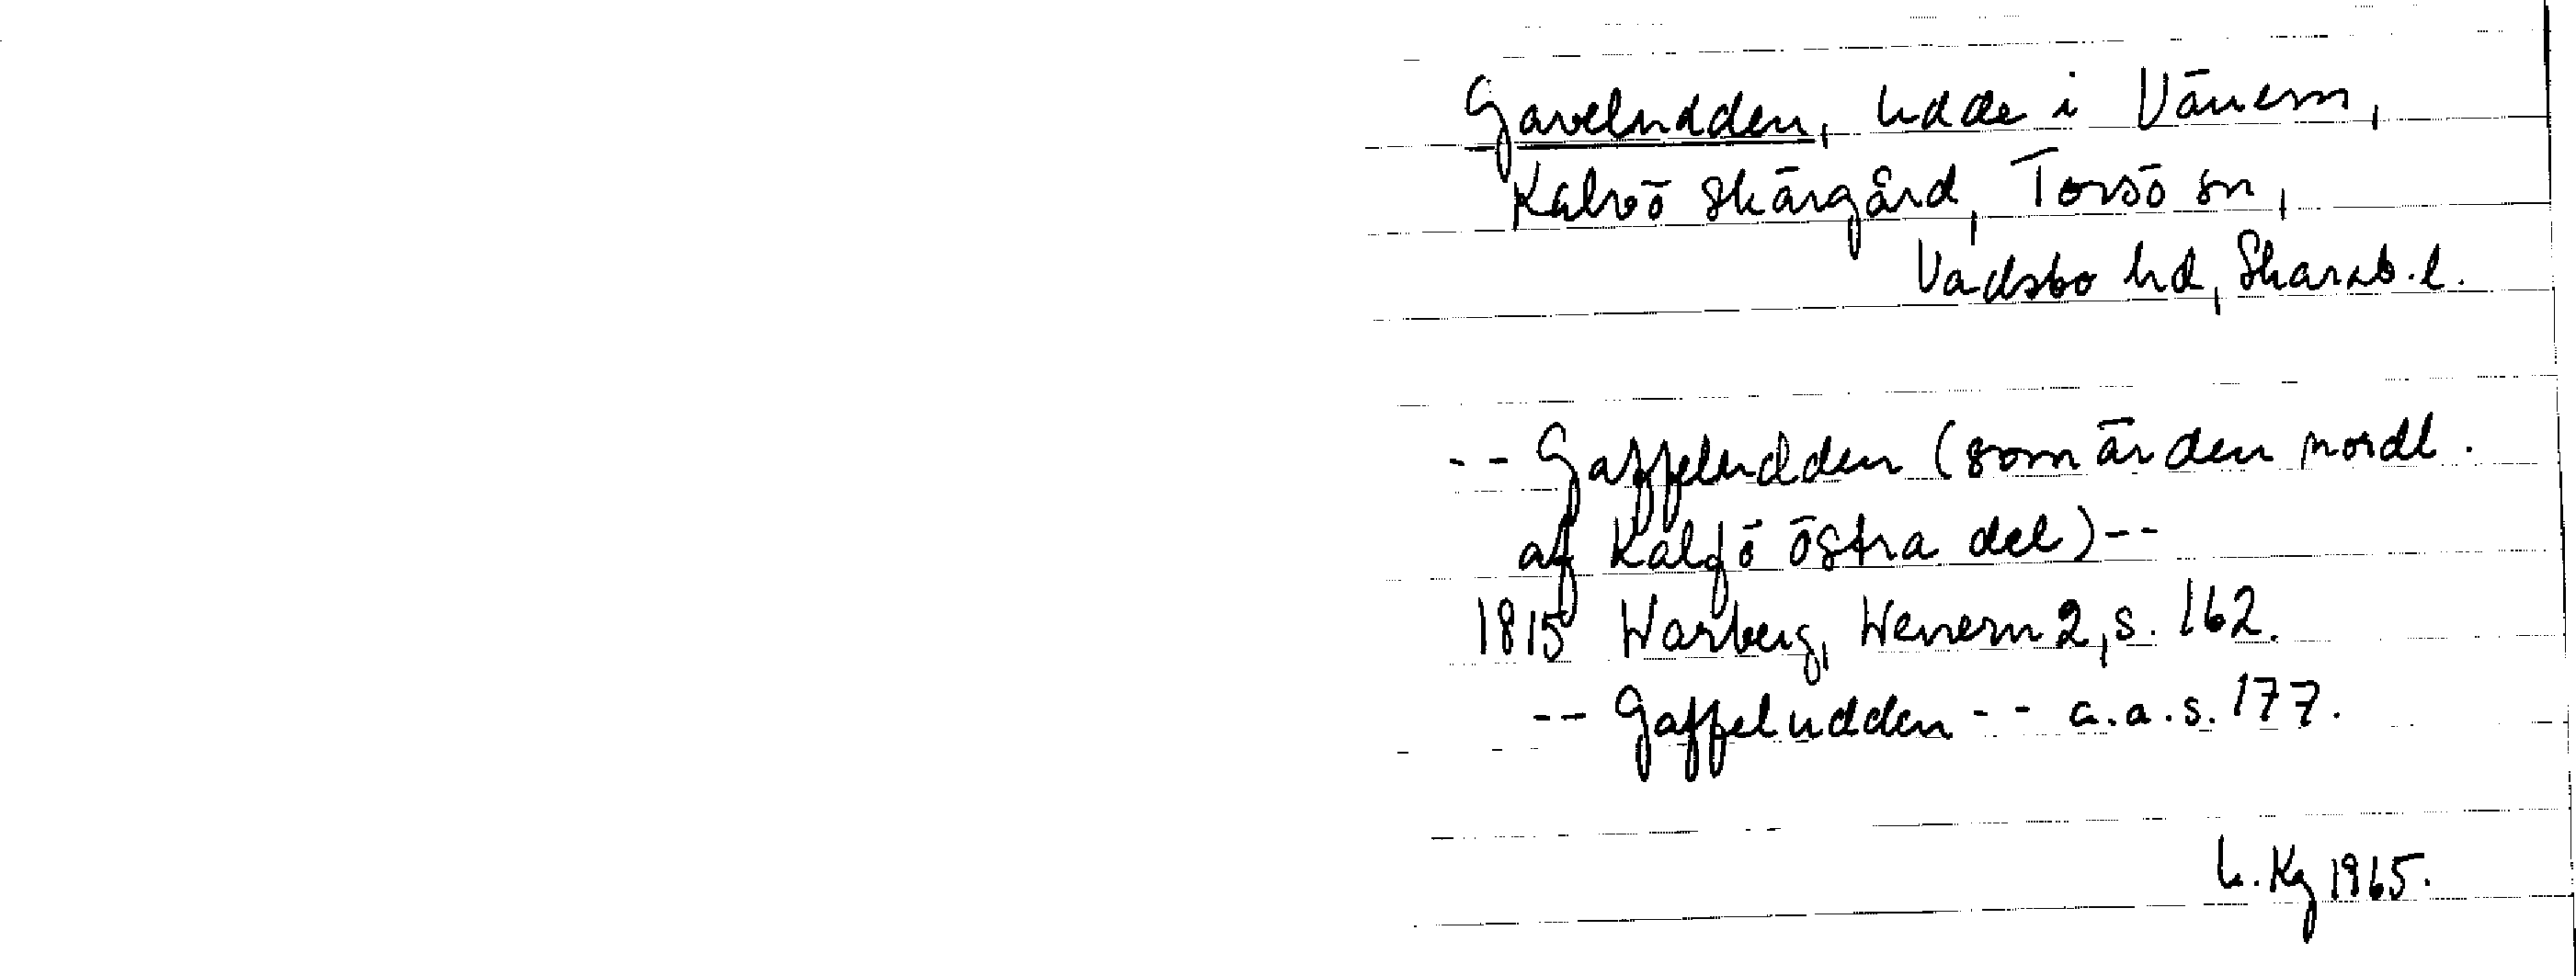 Gaveludden, udde i Vänern,
Kalvö skärgård, Torsö sn,
Vadsbo hd, Skarab.l.
-- Gaffeludden (som är den nordl.
af Kalfö östra del) --
1815 Warberg, Wenern 2, s. 162.
-- Gaffeludden -- a.a.s. 177.
L. Kg 1965.